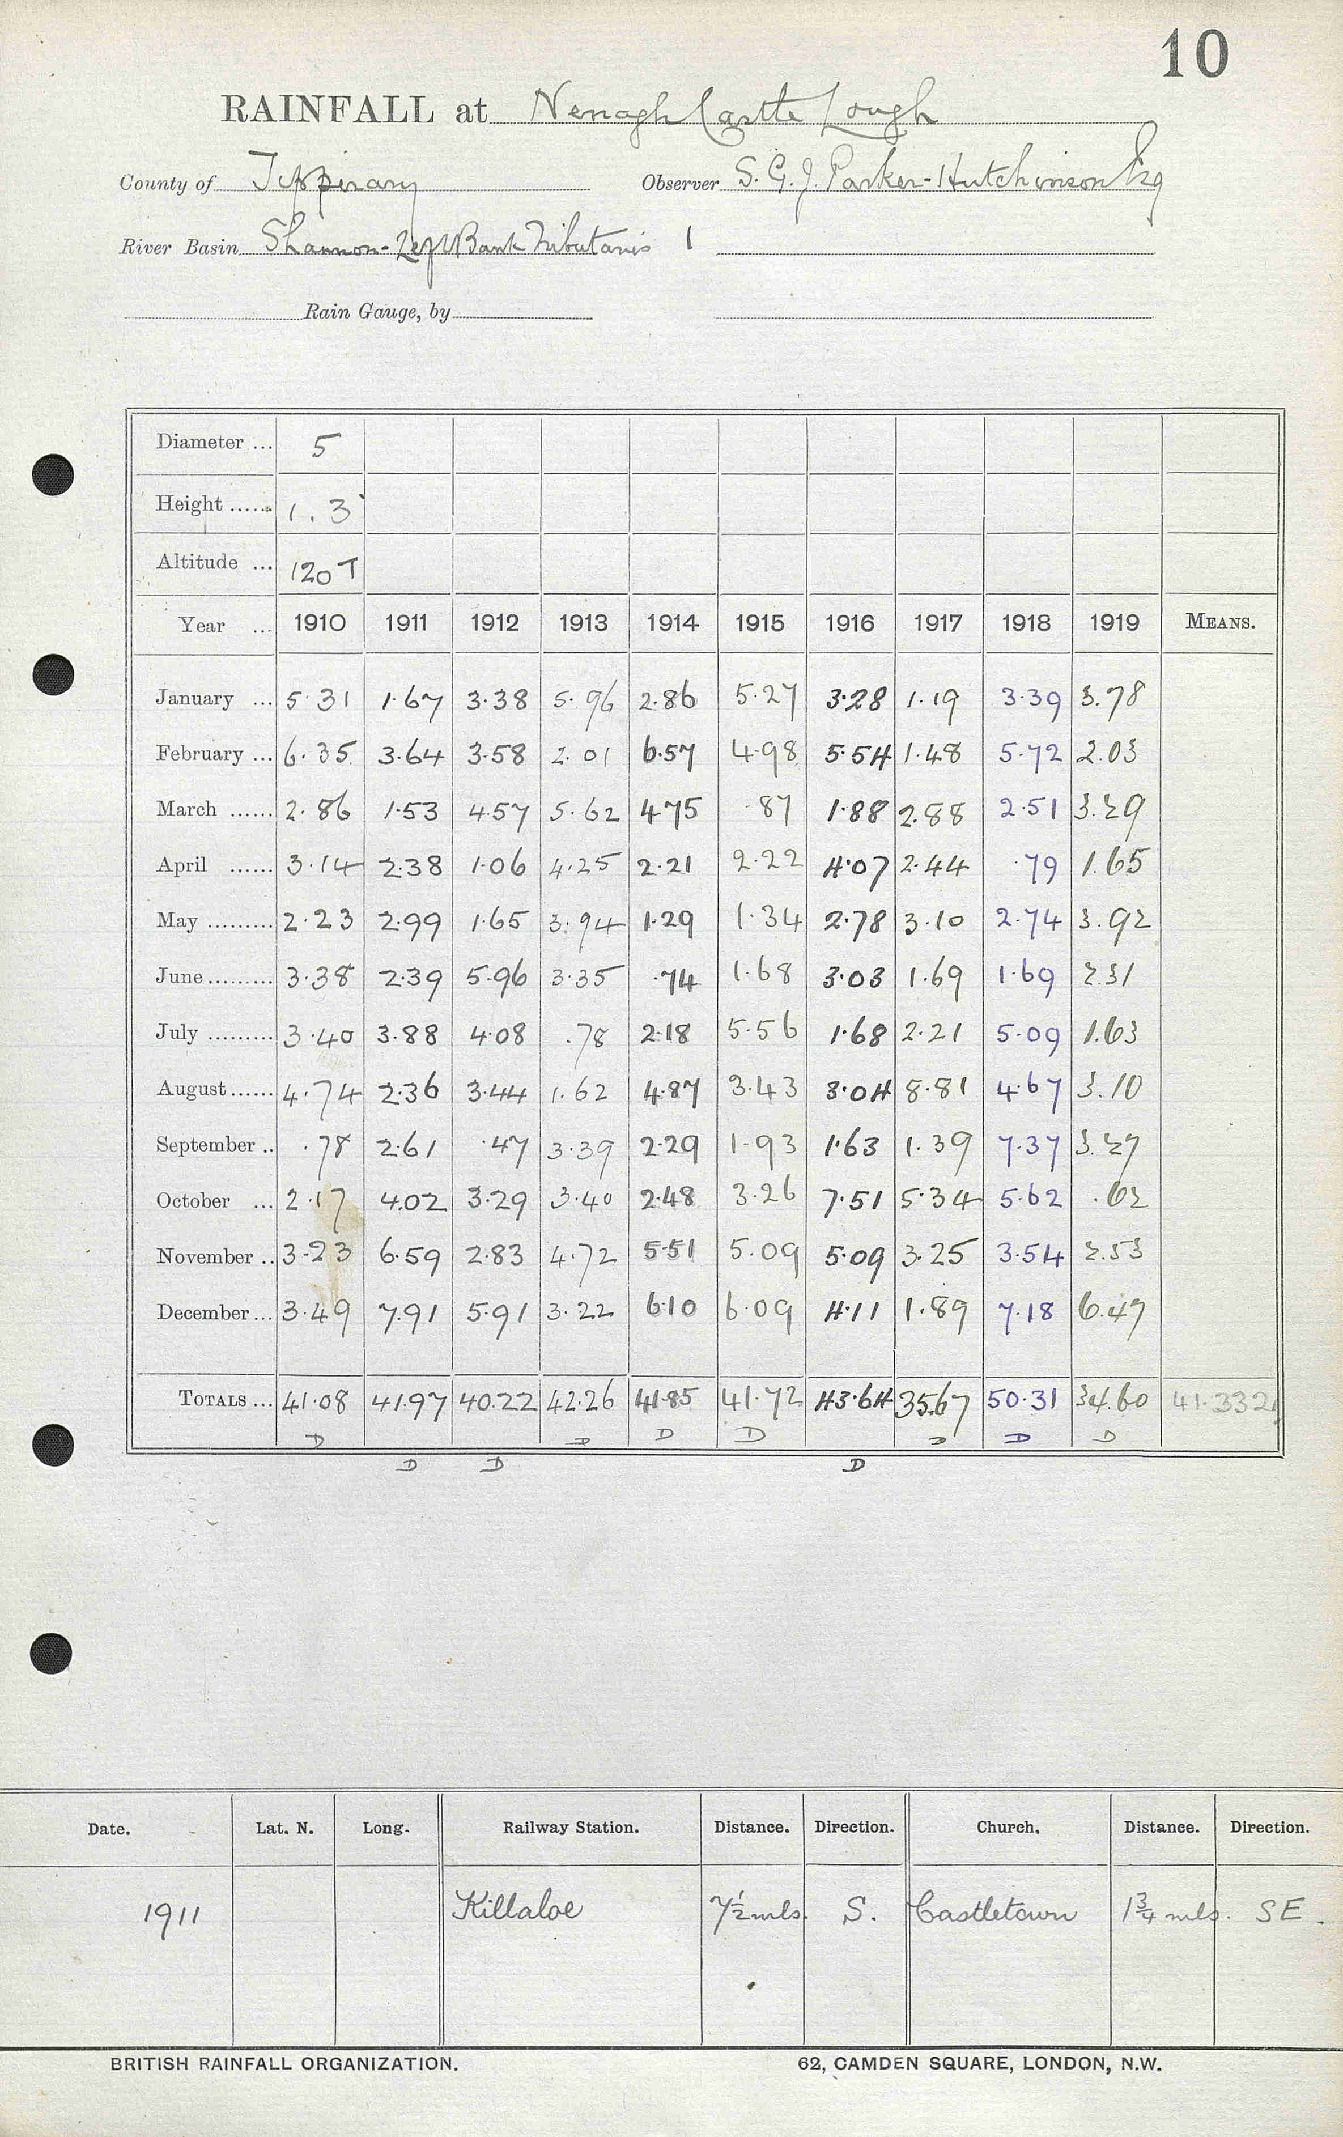 10
RAINFALL at Nenagh Castle Lough
County of Tipperary Observer S. G. J. Parker-Hutchinson Esq
River Basin Shannon-Left Bank Tributaries 1
Rain Gauge, by
Diameter ... 5
Height ...... 1.3
Altitude ... 120 T
Year ... 1910 1911 1912 1913 1914 1915 1916 1917 1918 1919 MEANS.
January ... 5.31 1.67 3.38 5.96 2.86 5.27 3.28 1.19 3.39 3.78
February ... 6.35 3.64 3.58 2.01 6.57 4.98 5.54 1.48 5.72 2.03
March ...... 2.86 1.53 4.57 5.62 4.75 .87 1.88 2.88 2.51 3.29
April ...... 3.14 2.38 1.06 4.25 2.21 2.22 4.07 2.44 .79 1.65
May ......... 2.23 2.99 1.65 3.94 1.29 1.34 2.78 3.10 2.74 3.92
June ......... 3.38 2.39 5.96 3.35 .74 1.68 3.03 1.69 1.69 2.31
July ......... 3.40 3.88 4.08 .78 2.18 5.56 1.68 2.21 5.09 1.63
August ...... 4.74 2.36 3.44 1.62 4.87 3.43 3.04 8.81 4.67 3.10
September .. .78 2.61 .47 3.39 2.29 1.93 1.63 1.39 7.37 3.27
October ... 2.17 4.02 3.29 3.40 2.48 3.26 7.51 5.34 5.62 .62
November .. 3.23 6.59 2.83 4.72 5.51 5.09 5.09 3.25 3.54 2.53
December ... 3.49 7.91 5.91 3.22 6.10 6.09 4.11 1.89 7.18 6.47
TOTALS ... 41.08 41.97 40.22 42.26 41.85 41.72 43.64 35.67 50.31 34.60 41.332
D D D D D D D
D D D
Date. Lat. N. Long. Railway Station. Distance. Direction. Church. Distance. Direction.
1911 Killaloe 7½ mls. S. Castletown 1¾ mls. SE.
BRITISH RAINFALL ORGANIZATION. 62, CAMDEN SQUARE, LONDON, N.W.